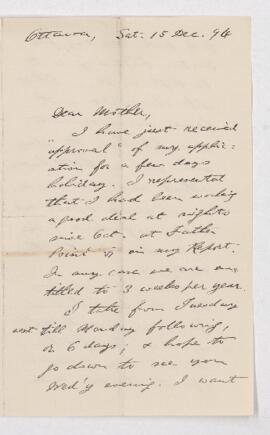 Ottawa, Sat: 15 Dec. 94
Dear Mother,
I have just received
"approval" of my applic-
ation for a few days
holiday. I represented
that I had been working
a good deal at nights
since Oct. at Father
Point &c in my Report.
In any case we are en-
titled to 3 weeks per year.
I take from Tuesday
next till Monday following,
or 6 days; & hope to
go down to see you
Wed'y evening. I want